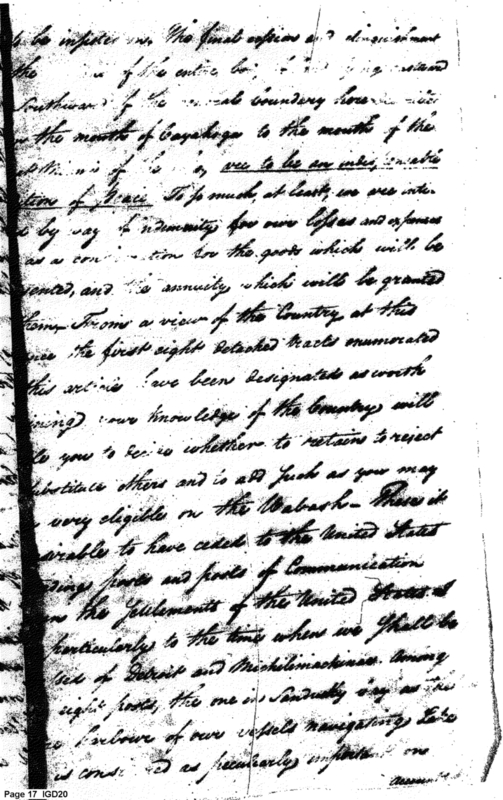 to be insisted on. The final cession and relinquishment
the of the entire body of lying eastward
Southward of the general boundary here
the mouth of Cayahoga to the mouth of the
of the are to be an indispensable
tion of Peace. To so much, at least, we are enti-
d by way of indemnity for our losses and expences
as a consideration for the goods which will be
sented, and the annuity which will be granted
them. From a view of the Country at this
nce the first eight detached tracts enumerated
this article have been designated as worth
ining, your knowledge of the Country will
le you to decide whether to retain to reject
substitute others and to add such as you may
very eligible on the Wabash — These it
sirable to have ceded to the United States
ading posts and posts of Communication
the Settlements of the United States
particularly to the time when we shall be
sed of Detroit and Michilimackinac. Among
eight posts, the one in Sandusky bay as the
harbour of our vessels navigating Lake
is considered as peculiarly important on
account
Page 17 IGD20